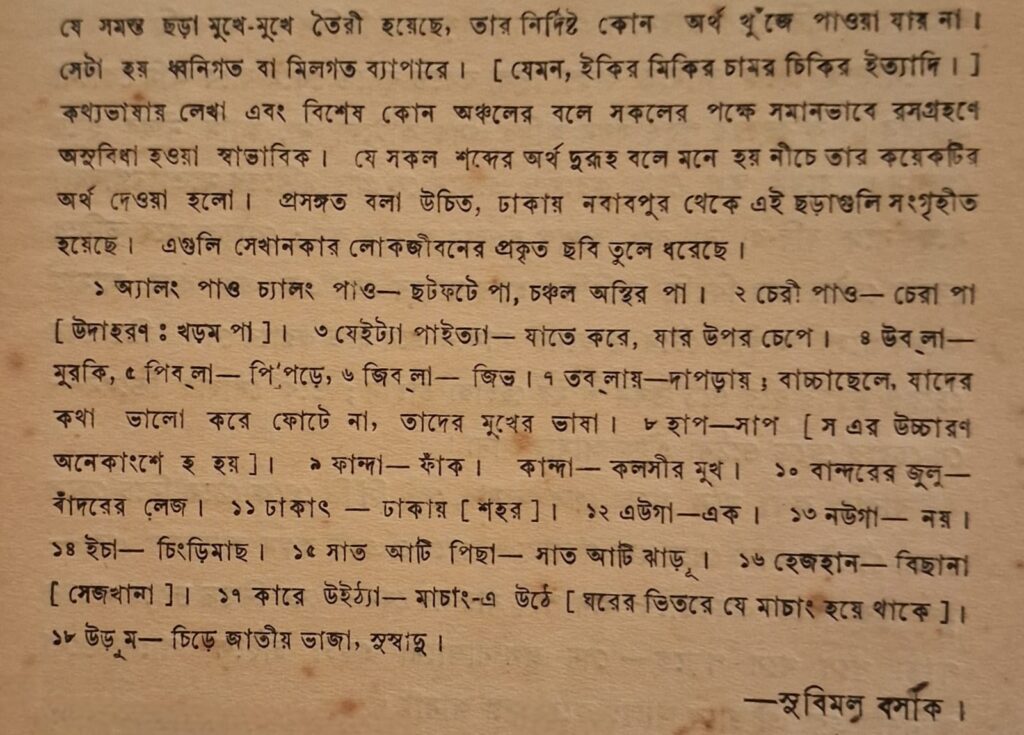 যে সমস্ত ছড়া মুখে-মুখে তৈরী হয়েছে, তার নির্দিষ্ট কোন অর্থ খুঁজে পাওয়া যায় না।
সেটা হয় ধ্বনিগত বা মিলগত ব্যাপারে। [ যেমন, ইকির মিকির চামর চিকির ইত্যাদি। ]
কথ্যভাষায় লেখা এবং বিশেষ কোন অঞ্চলের বলে সকলের পক্ষে সমানভাবে রসগ্রহণে
অসুবিধা হওয়া স্বাভাবিক। যে সকল শব্দের অর্থ দুরূহ বলে মনে হয় নীচে তার কয়েকটির
অর্থ দেওয়া হলো। প্রসঙ্গত বলা উচিত, ঢাকায় নবাবপুর থেকে এই ছড়াগুলি সংগৃহীত
হয়েছে। এগুলি সেখানকার লোকজীবনের প্রকৃত ছবি তুলে ধরেছে।
১ অ্যালং পাও চ্যালং পাও— ছটফটে পা, চঞ্চল অস্থির পা। ২ চেরী পাও— চেরা পা
[ উদাহরণ : খড়ম পা ]। ৩ যেইট্যা পাইত্যা— যাতে করে, যার উপর চেপে। ৪ উব্‌লা—
মুরকি, ৫ পিব্‌লা— পিঁপড়ে, ৬ জিব্‌লা— জিভ। ৭ তব্‌লায়—দাপড়ায় ; বাচ্চাছেলে, যাদের
কথা ভালো করে ফোটে না, তাদের মুখের ভাষা। ৮ হাপ—সাপ [ স এর উচ্চারণ
অনেকাংশে হ হয় ]। ৯ ফান্দা— ফাঁক। কান্দা— কলসীর মুখ। ১০ বান্দরের জুলু—
বাঁদরের লেজ। ১১ ঢাকাৎ — ঢাকায় [ শহর ]। ১২ এউগা—এক। ১৩ নউগা— নয়।
১৪ ইচা— চিংড়িমাছ। ১৫ সাত আটি পিছা— সাত আটি ঝাড়ু। ১৬ হেজহান— বিছানা
[ সেজখানা ]। ১৭ কারে উইঠ্যা— মাচাং-এ উঠে [ ঘরের ভিতরে যে মাচাং হয়ে থাকে ]।
১৮ উড়ুম— চিড়ে জাতীয় ভাজা, সুস্বাদু।
—সুবিমল বসাক।